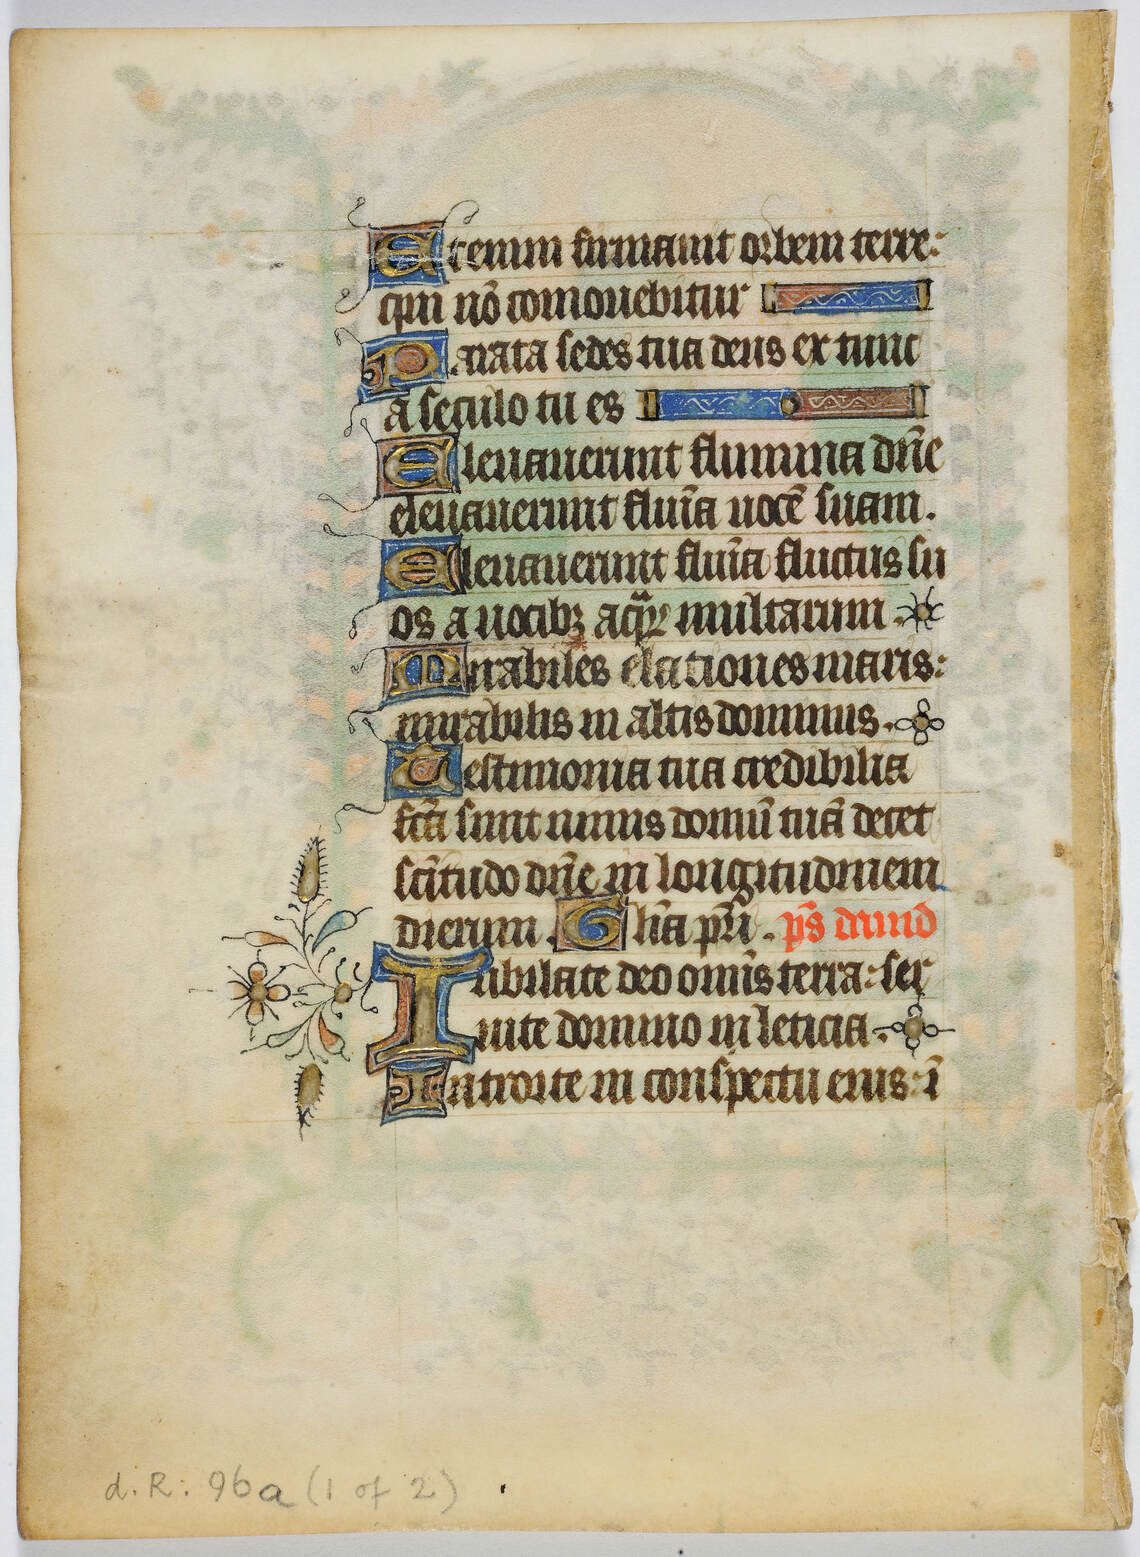 Etenim firmauit orbem terre:
qui nō comouebitur
Parata sedes tua deus ex tunc
a seculo tu es
Eleuauerunt flumina dn̄e
eleuauerunt fluīa uocē suam.
Eleuauerunt fluīa fluctus su
os a uocibꝫ aqͣꝝ multarum.
Mirabiles elationes maris:
mirabilis in altis dominus.
Testimonia tua credibilia
fc̄a sunt nimis domū tuā decet
sc̄itudo dn̄e in longitudinem
dierum. Gl̄ia pr̄i. ps̄ dauid
Iubilate deo omīs terra: ser
uite domino in leticia.
Introite in conspectu eius: ī
d.R: 96a (1 of 2)